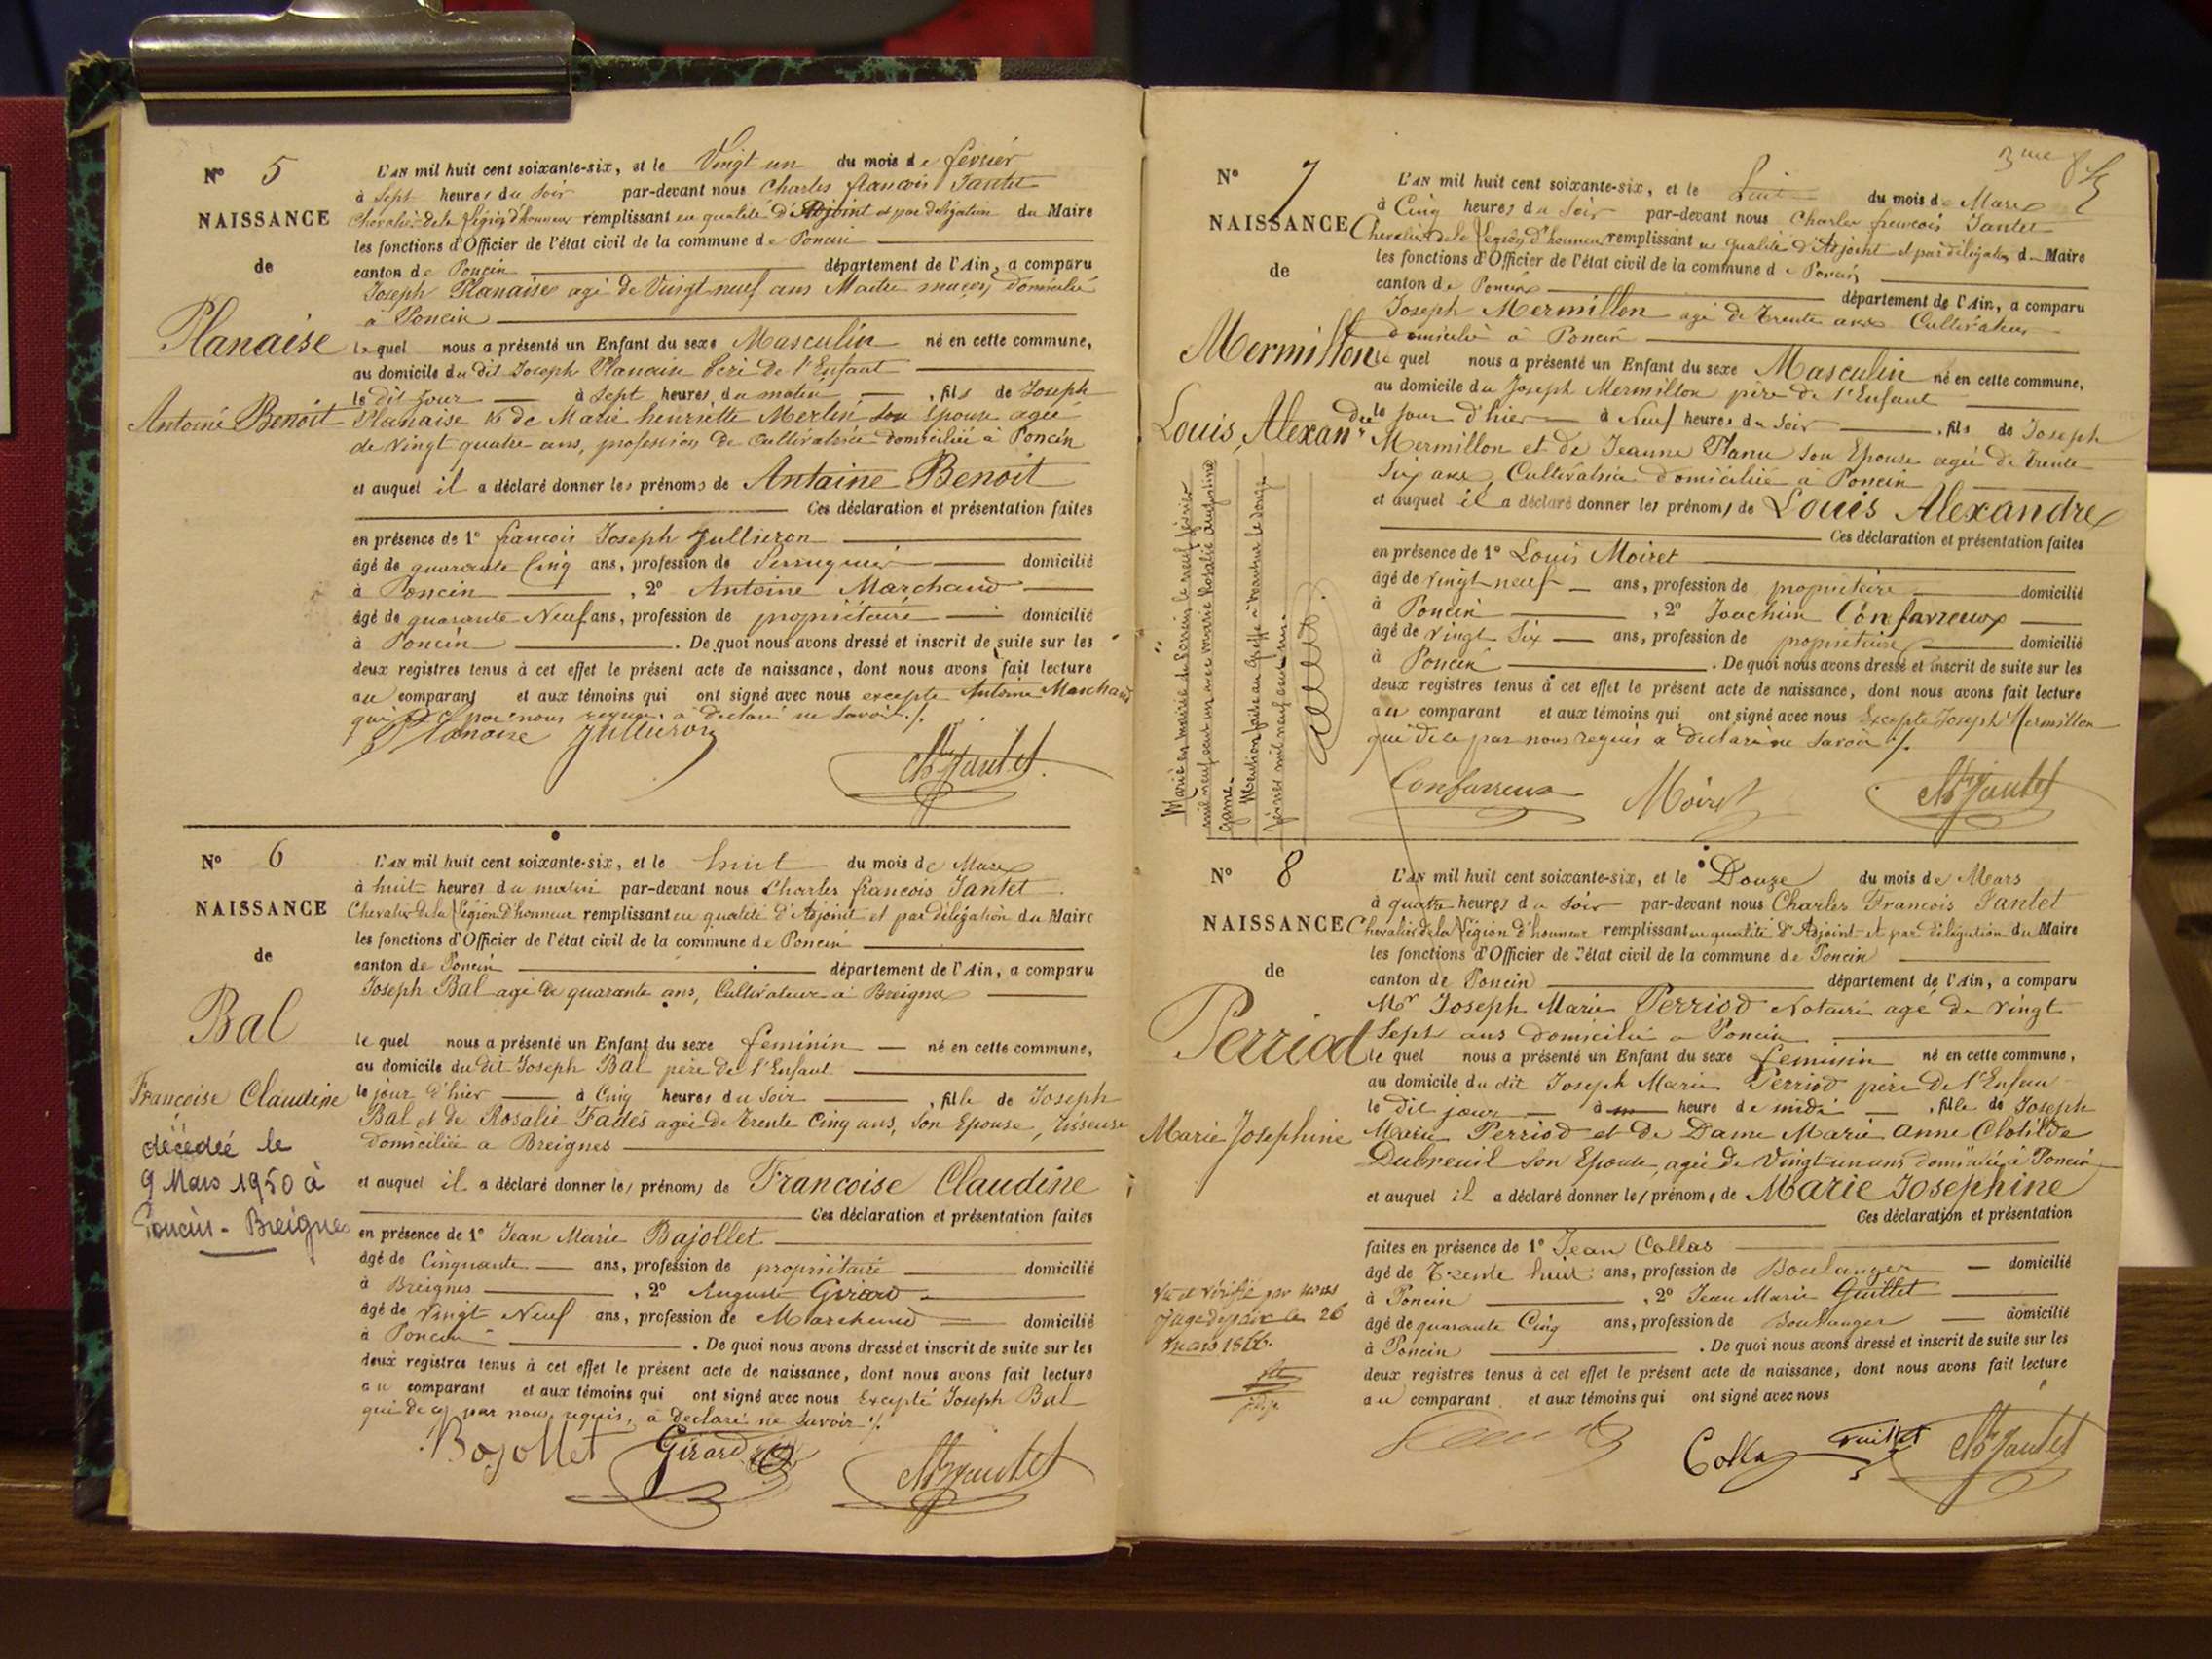 N° 5
NAISSANCE
de
Planaise
Antoine Benoit
L'AN mil huit cent soixante-six, et le Vingt un du mois de fevrier
à Sept heures du soir par-devant nous Charles francois Jantet
Chevalier de la Légion d'honneur remplissant en qualité d'Adjoint et par délégation du Maire
les fonctions d'Officier de l'état civil de la commune de Poncin
canton de Poncin département de l'Ain, a comparu
Joseph Planaise agé de Vingt neuf ans Maitre maçon domicilié
à Poncin
lequel nous a présenté un Enfant du sexe Masculin né en cette commune,
au domicile du dit Joseph Planaise Père de l'Enfant
le dit jour à Sept heures du matin, fils de Joseph
Planaise & de Marie henriette Merlin son Epouse agée
de vingt quatre ans, profession de cultivatrice domiciliée à Poncin
et auquel il a déclaré donner les prénoms de Antoine Benoit
Ces déclaration et présentation faites
en présence de 1° francois Joseph Jullieron
âgé de quarante Cinq ans, profession de Perruquier domicilié
à Poncin, 2° Antoine Marchand
âgé de quarante Neuf ans, profession de propriétaire domicilié
à Poncin. De quoi nous avons dressé et inscrit de suite sur les
deux registres tenus à cet effet le présent acte de naissance, dont nous avons fait lecture
au comparant et aux témoins qui ont signé avec nous excepte Antoine Marchand
qui de ce par nous requis, a declaré ne savoir./.
Planaise Jullieron
Ch Jantet
N° 6
NAISSANCE
de
Bal
Francoise Claudine
décédée le
9 Mars 1950 à
Poncin - Breignes
L'AN mil huit cent soixante-six, et le huit du mois de Mars
à huit heures du matin par-devant nous Charles francois Jantet
Chevalier de la Légion d'honneur remplissant en qualité d'Adjoint et par délégation du Maire
les fonctions d'Officier de l'état civil de la commune de Poncin
canton de Poncin département de l'Ain, a comparu
Joseph Bal agé de quarante ans, Cultivateur à Breignes
lequel nous a présenté un Enfant du sexe feminin né en cette commune,
au domicile du dit Joseph Bal père de l'Enfant
le jour d'hier à Cinq heures du Soir, fille de Joseph
Bal et de Rosalie agée de Trente Cinq ans, Son Epouse, Tisseuse
domiciliée a Breignes
et auquel il a déclaré donner les prénoms de Francoise Claudine
Ces déclaration et présentation faites
en présence de 1° Jean Marie Bajollet
âgé de Cinquante ans, profession de propriétaire domicilié
à Breignes, 2° Auguste Girard
âgé de Vingt Neuf ans, profession de Marchand domicilié
à Poncin. De quoi nous avons dressé et inscrit de suite sur les
deux registres tenus à cet effet le présent acte de naissance, dont nous avons fait lecture
au comparant et aux témoins qui ont signé avec nous Excepté Joseph Bal
qui de ce par nous requis, a déclaré ne savoir ./.
Bajollet Girard
Ch Jantet
3me
N° 7
NAISSANCE
de
Mermillon
Louis, Alexandre
Marié en mairie de Poncin le neuf février
mil neuf cent un avec Marie Rosalie Augustine
Game.
Mention faite au Greffe à le douze
février mil neuf cent un.
L'AN mil huit cent soixante-six, et le huit du mois de Mars
à Cinq heures du Soir par-devant nous Charles francois Jantet
Chevalier de la Légion d'honneur remplissant en qualité d'Adjoint et par délégation du Maire
les fonctions d'Officier de l'état civil de la commune de Poncin
canton de Poncin département de l'Ain, a comparu
Joseph Mermillon agé de Trente ans Cultivateur
domicilié à Poncin
le quel nous a présenté un Enfant du sexe Masculin né en cette commune,
au domicile du Joseph Mermillon père de l'Enfant
le jour d'hier à Neuf heures du Soir, fils de Joseph
Mermillon et de Jeanne Planu Son Epouse agée de Trente
Six ans, Cultivatrice domiciliée à Poncin
et auquel il a déclaré donner les prénoms de Louis Alexandre
Ces déclaration et présentation faites
en présence de 1° Louis Moiret
âgé de vingt neuf ans, profession de propriétaire domicilié
à Poncin, 2° Joachim Confavreux
âgé de vingt Six ans, profession de propriétaire domicilié
à Poncin. De quoi nous avons dressé et inscrit de suite sur les
deux registres tenus à cet effet le présent acte de naissance, dont nous avons fait lecture
au comparant et aux témoins qui ont signé avec nous Excepte Joseph Mermillon
qui de ce par nous requis a declaré ne savoir ./.
Confavreux Moiret Ch Jantet
N° 8
NAISSANCE
de
Perriod
Marie Josephine
Vu et vérifié par nous
Juge de paix le 26
mars 1866.
juge
L'AN mil huit cent soixante-six, et le Douze du mois de Mars
à quatre heures du Soir par-devant nous Charles Francois Jantet
Chevalier de la Légion d'honneur remplissant en qualité d'Adjoint et par délégation du Maire
les fonctions d'Officier de l'état civil de la commune de Poncin
canton de Poncin département de l'Ain, a comparu
Mr Joseph Marie Perriod Notaire agé de Vingt
Sept ans domicilié a Poncin
le quel nous a présenté un Enfant du sexe feminin né en cette commune,
au domicile du dit Joseph Marie Perriod père de l'Enfan
le dit jour à heure de midi, fille de Joseph
Marie Perriod et de Dame Marie Anne Clotilde
Dubreuil Son Epouse, agée de Vingt un ans domiciliée à Poncin
et auquel il a déclaré donner les prénoms de Marie Josephine
Ces déclaration et présentation
faites en présence de 1° Jean Collas
âgé de Trente huit ans, profession de Boulanger domicilié
à Poncin, 2° Jean Marie Guillet
âgé de quarante Cinq ans, profession de Boulanger domicilié
à Poncin. De quoi nous avons dressé et inscrit de suite sur les
deux registres tenus à cet effet le présent acte de naissance, dont nous avons fait lecture
au comparant et aux témoins qui ont signé avec nous
Collas Guillet Ch Jantet